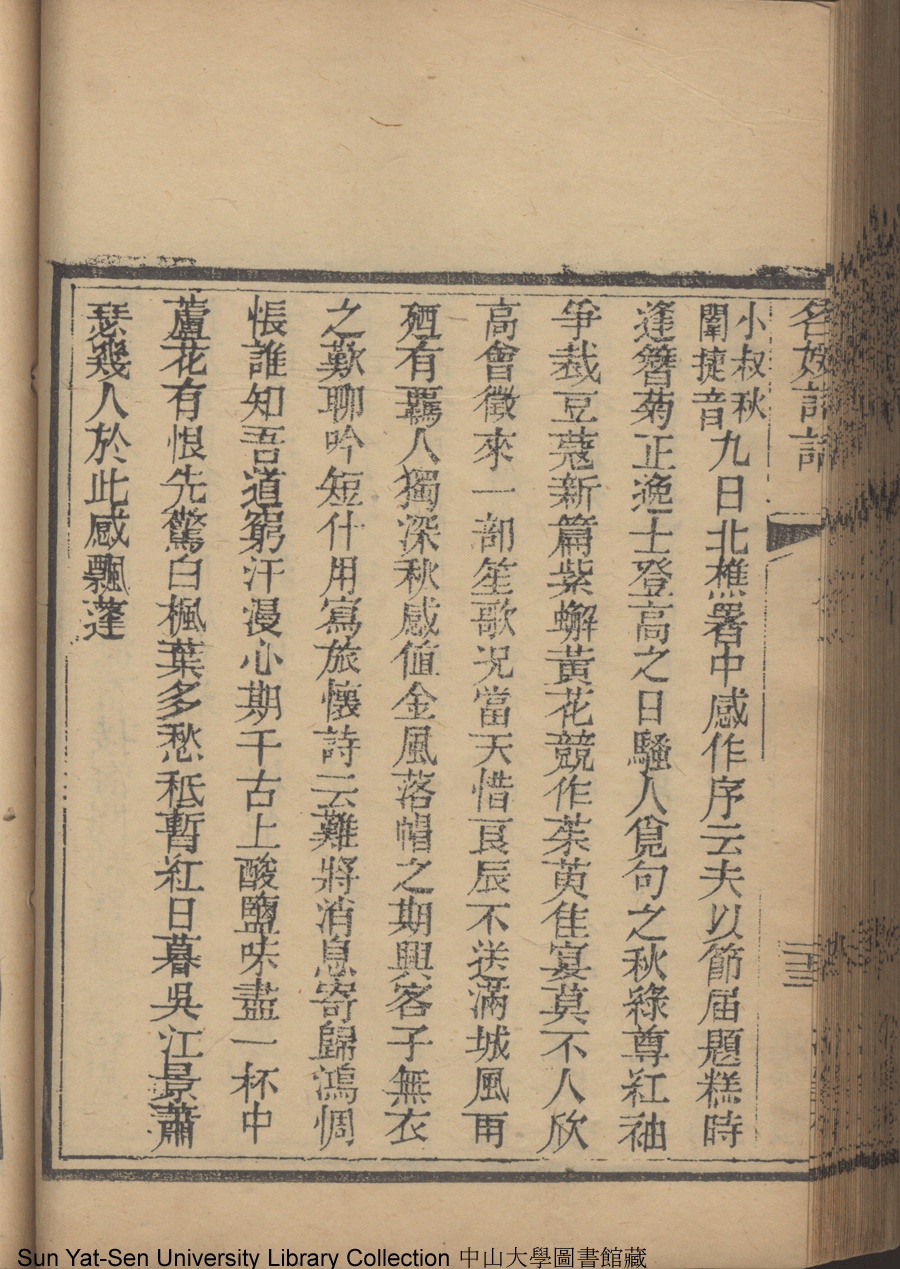 名媛詩話
小叔秋
闈捷音
九日北樵署中感作序云夫以節届題糕時
逢簪菊正逸士登高之日騷人覓句之秋綠尊紅袖
爭裁豆蔻新篇紫蠏黃花競作茱萸佳宴莫不人欣
高會徵來一部笙歌況當天惜良辰不送滿城風雨
廼有羈人獨深秋感值金風落帽之期興客子無衣
之歎聊吟短什用寫旅懷詩云難將消息寄歸鴻惆
悵誰知吾道窮汗漫心期千古上酸鹽味盡一杯中
蘆花有恨先驚白楓葉多愁秪暫紅日暮吳江景蕭
瑟幾人於此感飄蓬
Sun Yat-Sen University Library Collection 中山大學圖書館藏